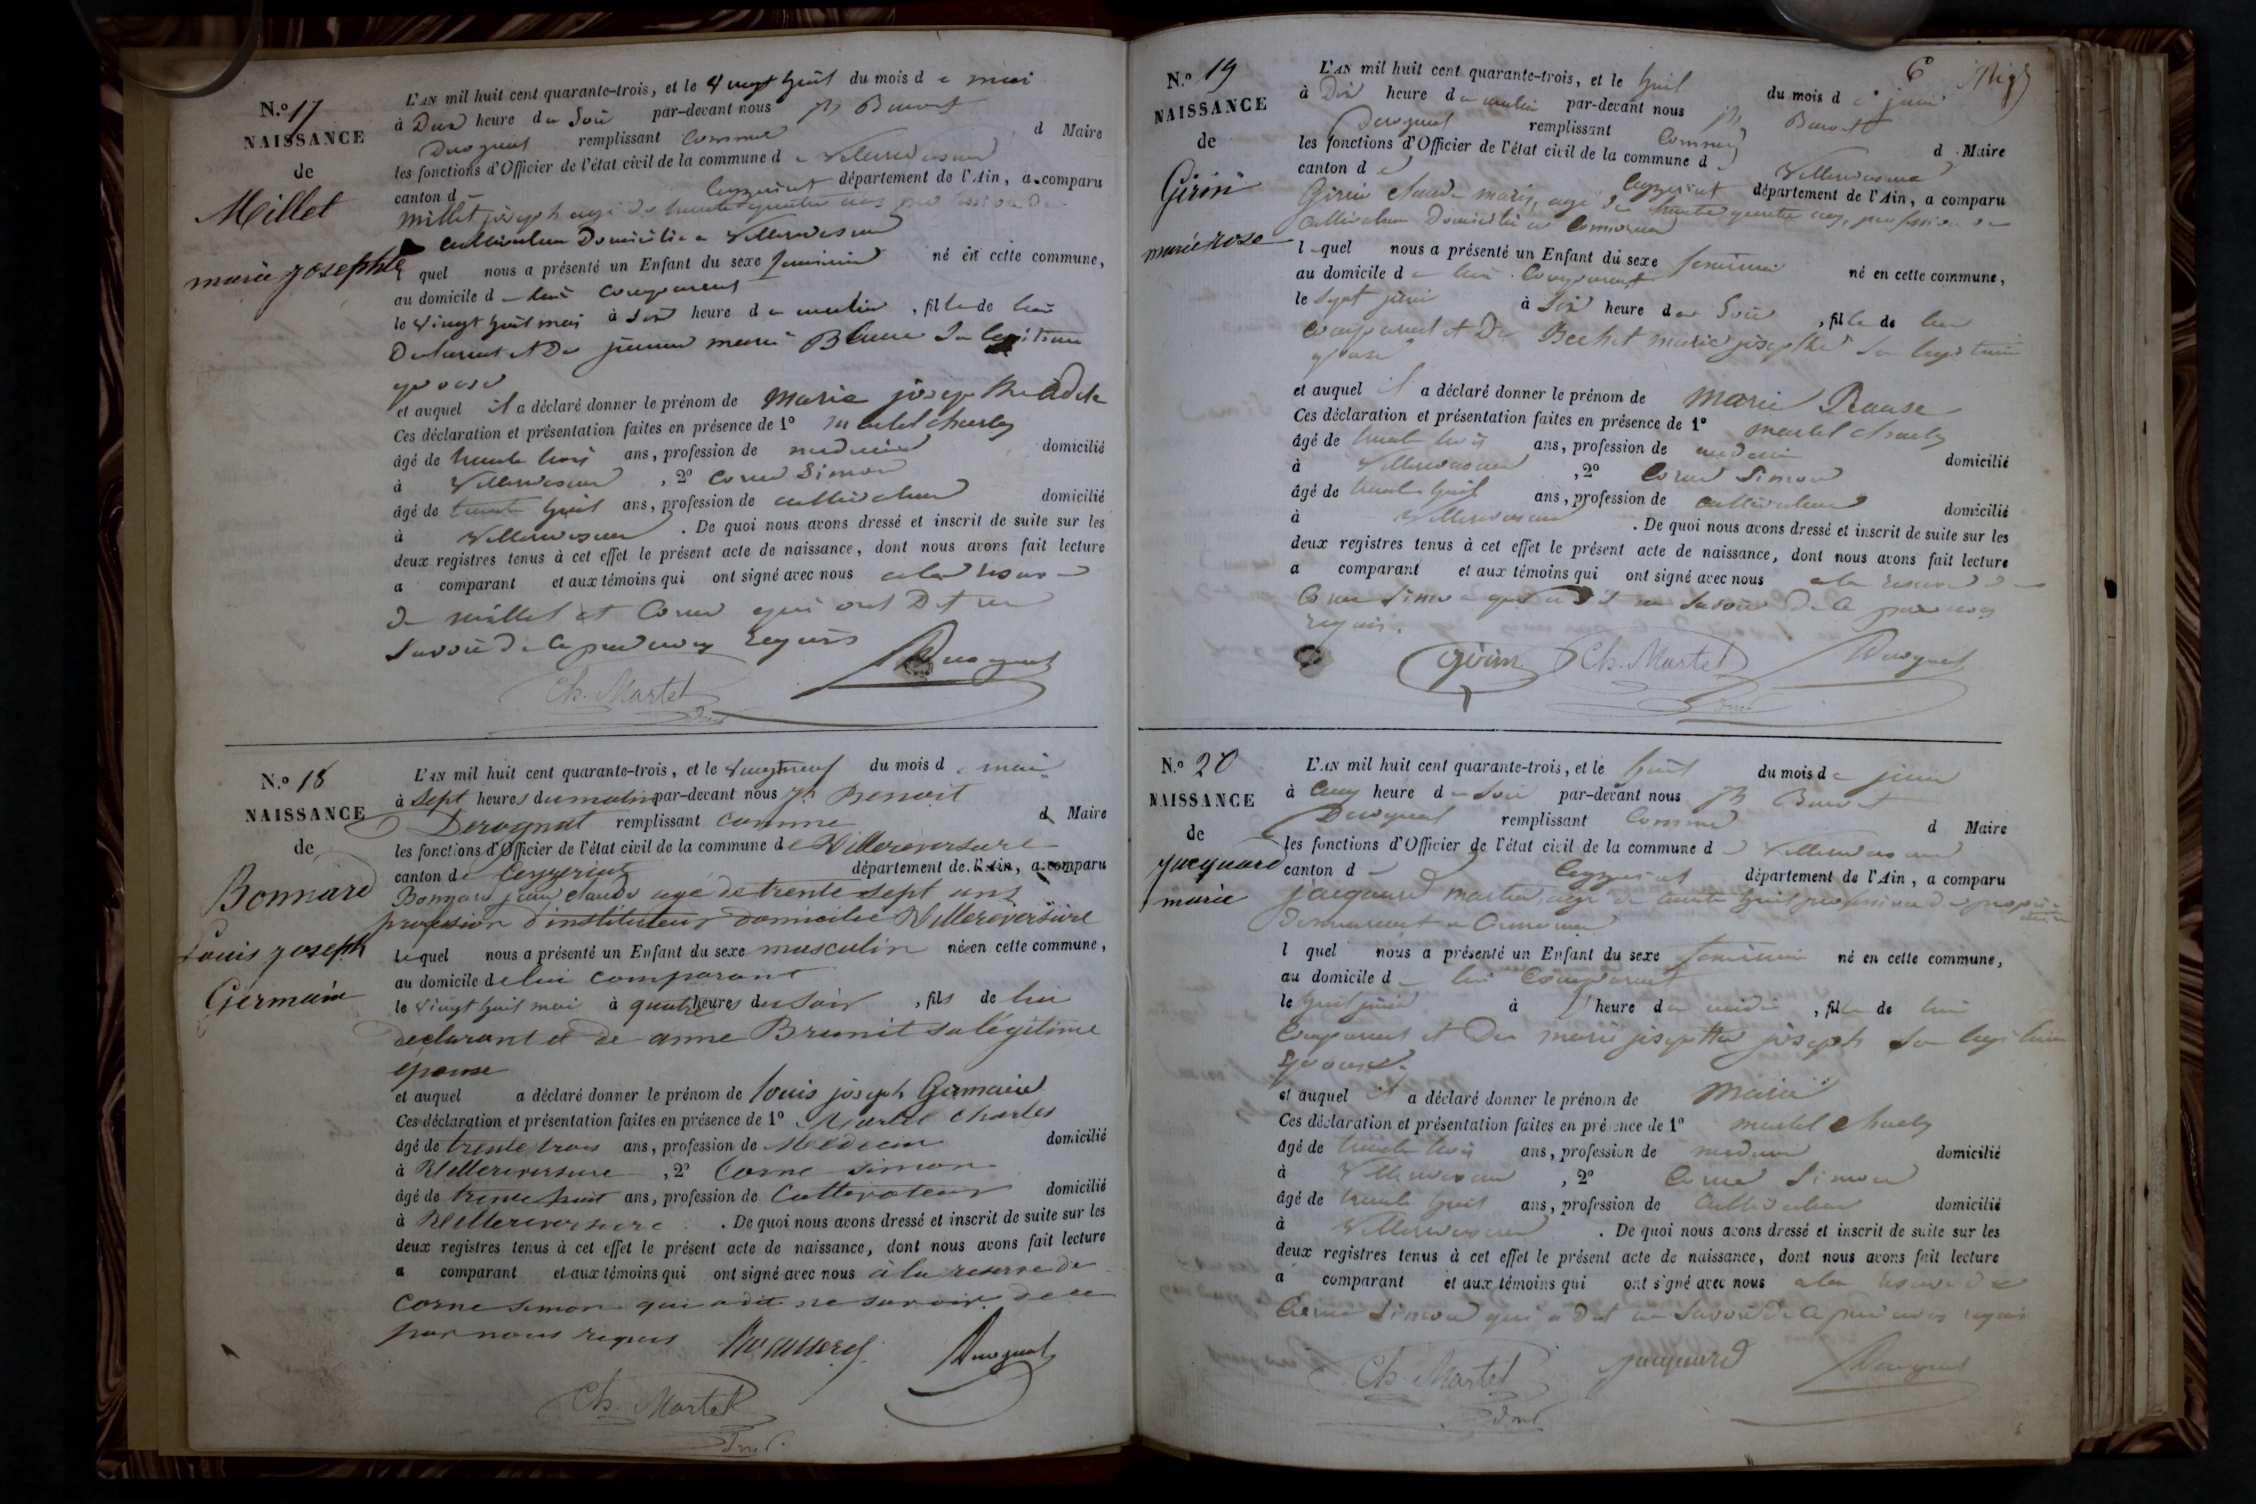 N.o 17
NAISSANCE
de
Millet
marie josephte
L'AN mil huit cent quarante-trois, et le vingt huit du mois d e mai
à Deux heure du Soir par-devant nous jh Benoit
Derognat remplissant comme d Maire
les fonctions d'Officier de l'état civil de la commune d e Villereversure
canton d e Ceyzeriat département de l'Ain, a comparu
Millet joseph agé de trente quatre ans profession de
cultivateur Domicilié a Villereversure
l quel nous a présenté un Enfant du sexe feminin né en cette commune,
au domicile d e lui comparant
le vingt huit mai à Six heure d u matin, fille de lui
Declarant et De marie Blanc Sa legitime
epouse
et auquel il a déclaré donner le prénom de marie josephte adele
Ces déclaration et présentation faites en présence de 1o martel charles
âgé de trente trois ans, profession de medecin domicilié
à Villereversure, 2o Corne Simon
âgé de trente huit ans, profession de cultivateur domicilié
à Villereversure. De quoi nous avons dressé et inscrit de suite sur les
deux registres tenus à cet effet le présent acte de naissance, dont nous avons fait lecture
a comparant et aux témoins qui ont signé avec nous a la reserve
de millet et Corne qui ont Dit ne
Savoir de ce par nous requis
Ch. Martel Derognat
N.o 18
NAISSANCE
de
Bonnard
Louis joseph
Germain
L'AN mil huit cent quarante-trois, et le vingt neuf du mois d e mai
à Sept heures du matin par-devant nous jh Benoit
Derognat remplissant comme d Maire
les fonctions d'Officier de l'état civil de la commune de Villereversure
canton de Ceyzeriat département de l'Ain, a comparu
Bonnard jean claude agé de trente sept ans
profession d'instituteur domicilié Villereversure
Lequel nous a présenté un Enfant du sexe masculin né en cette commune,
au domicile de lui comparant
le vingt huit mai à quatre heures du soir, fils de lui
declarant et de anne Brunit sa légitime
epouse
et auquel a déclaré donner le prénom de louis joseph Germain
Ces déclaration et présentation faites en présence de 1o Martel charles
âgé de trente trois ans, profession de Medecin domicilié
à Villereversure, 2o Corne simon
âgé de trente huit ans, profession de Cultivateur domicilié
à Villereversure. De quoi nous avons dressé et inscrit de suite sur les
deux registres tenus à cet effet le présent acte de naissance, dont nous avons fait lecture
a comparant et aux témoins qui ont signé avec nous à la reserve de
corne simon qui a dit ne savoir de ce
par nous requis Derognat
Ch. Martel
6
N.o 19
NAISSANCE
de
Girin
marie rose
L'AN mil huit cent quarante-trois, et le huit du mois d e juin
à Dix heure d u matin par-devant nous jh Benoit
Derognat remplissant Comme d Maire
les fonctions d'Officier de l'état civil de la commune d e Villereversure
canton d e Ceyzeriat département de l'Ain, a comparu
Girin claude marie, agé de trente quatre ans, profession de
cultivateur Domicilié a Commune
l quel nous a présenté un Enfant du sexe feminin né en cette commune,
au domicile d e lui Comparant
le Sept juin à Six heure du Soir, fille de lui
Comparant et De Bechet marie josephte Sa legitime
epouse
et auquel il a déclaré donner le prénom de marie Rause
Ces déclaration et présentation faites en présence de 1o martel charles
âgé de trente trois ans, profession de medecin domicilié
à Villereversure, 2o Corne Simon
âgé de trente huit ans, profession de cultivateur domicilié
à Villereversure. De quoi nous avons dressé et inscrit de suite sur les
deux registres tenus à cet effet le présent acte de naissance, dont nous avons fait lecture
a comparant et aux témoins qui ont signé avec nous a la reserve de
Corne Simon qui a dit ne Savoir De ce par nous
requis.
Girin Ch. Martel Derognat
N.o 20
NAISSANCE
de
jacquard
marie
L'AN mil huit cent quarante-trois, et le huit du mois d e juin
à Cinq heure d u Soir par-devant nous jh Benoit
Derognat remplissant Comme d Maire
les fonctions d'Officier de l'état civil de la commune d e Villereversure
canton d e Ceyzeriat département de l'Ain, a comparu
jacquard martin agé de trente huit profession de propriétaire
Demeurant a Commune
l quel nous a présenté un Enfant du sexe feminin né en cette commune,
au domicile d e lui Comparant
le huit juin à heure du midi, fille de lui
Comparant et De marie josephte joseph Sa legitime
Epouse.
et auquel il a déclaré donner le prénom de Marie
Ces déclaration et présentation faites en présence de 1o martel charles
âgé de trente trois ans, profession de medecin domicilié
à Villereversure, 2o Corne Simon
âgé de trente huit ans, profession de Cultivateur domicilié
à Villereversure. De quoi nous avons dressé et inscrit de suite sur les
deux registres tenus à cet effet le présent acte de naissance, dont nous avons fait lecture
a comparant et aux témoins qui ont signé avec nous a la reserve de
Corne Simon qui a Dit ne Savoir De ce par nous requis
Ch. Martel jacquard Derognat